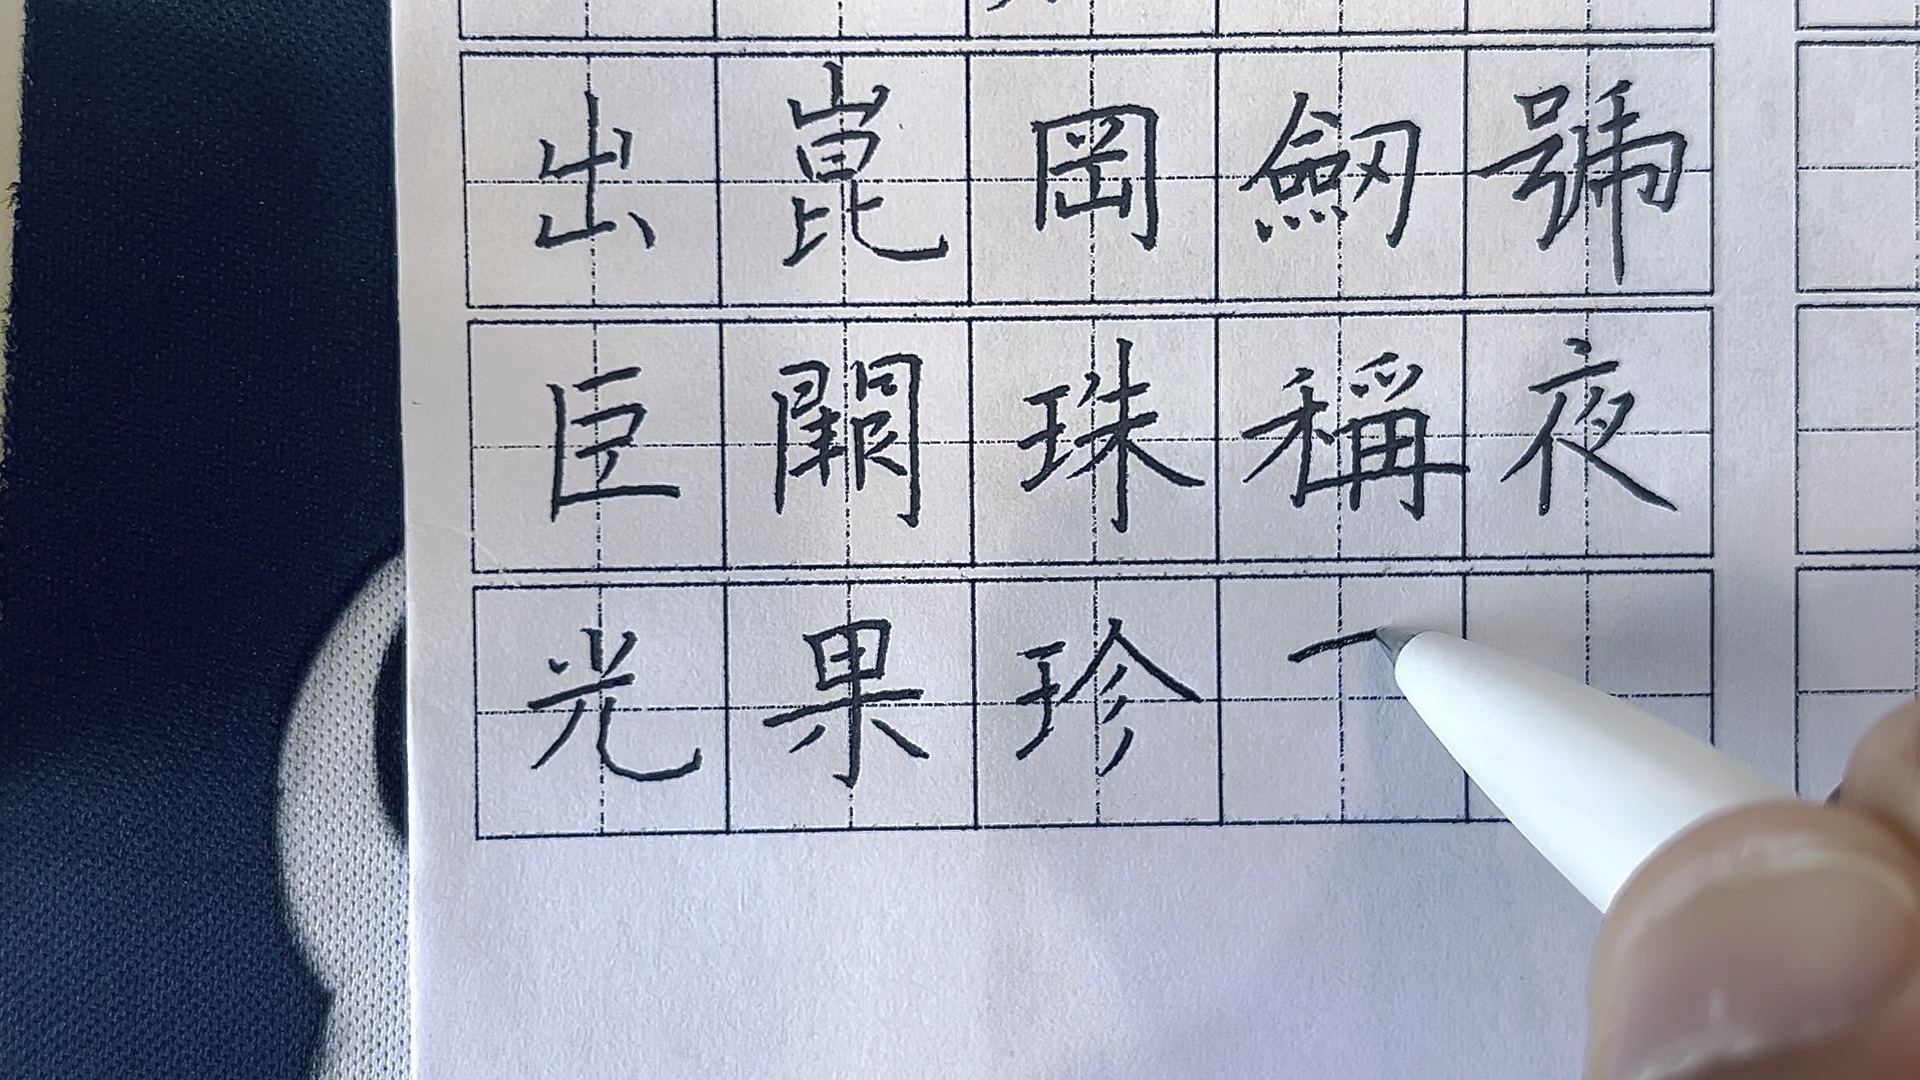 出崑岡劒號
巨闕珠稱夜
光果珍